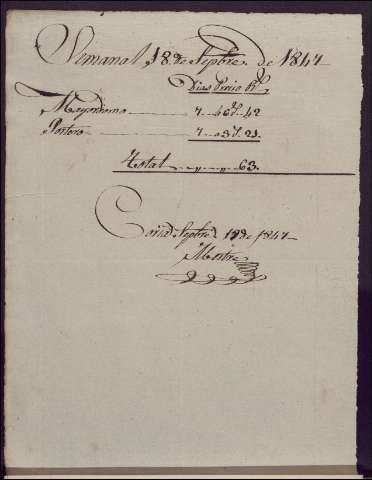 Semanal 18. de Sepbre. de 1847
Dias Precio Rs.
Mayordomo 7 a 6 rs. 42
Portero 7 a 3 rs. 21.
Total 63.
Coria Sepbre. 18 de 1847
Mestre